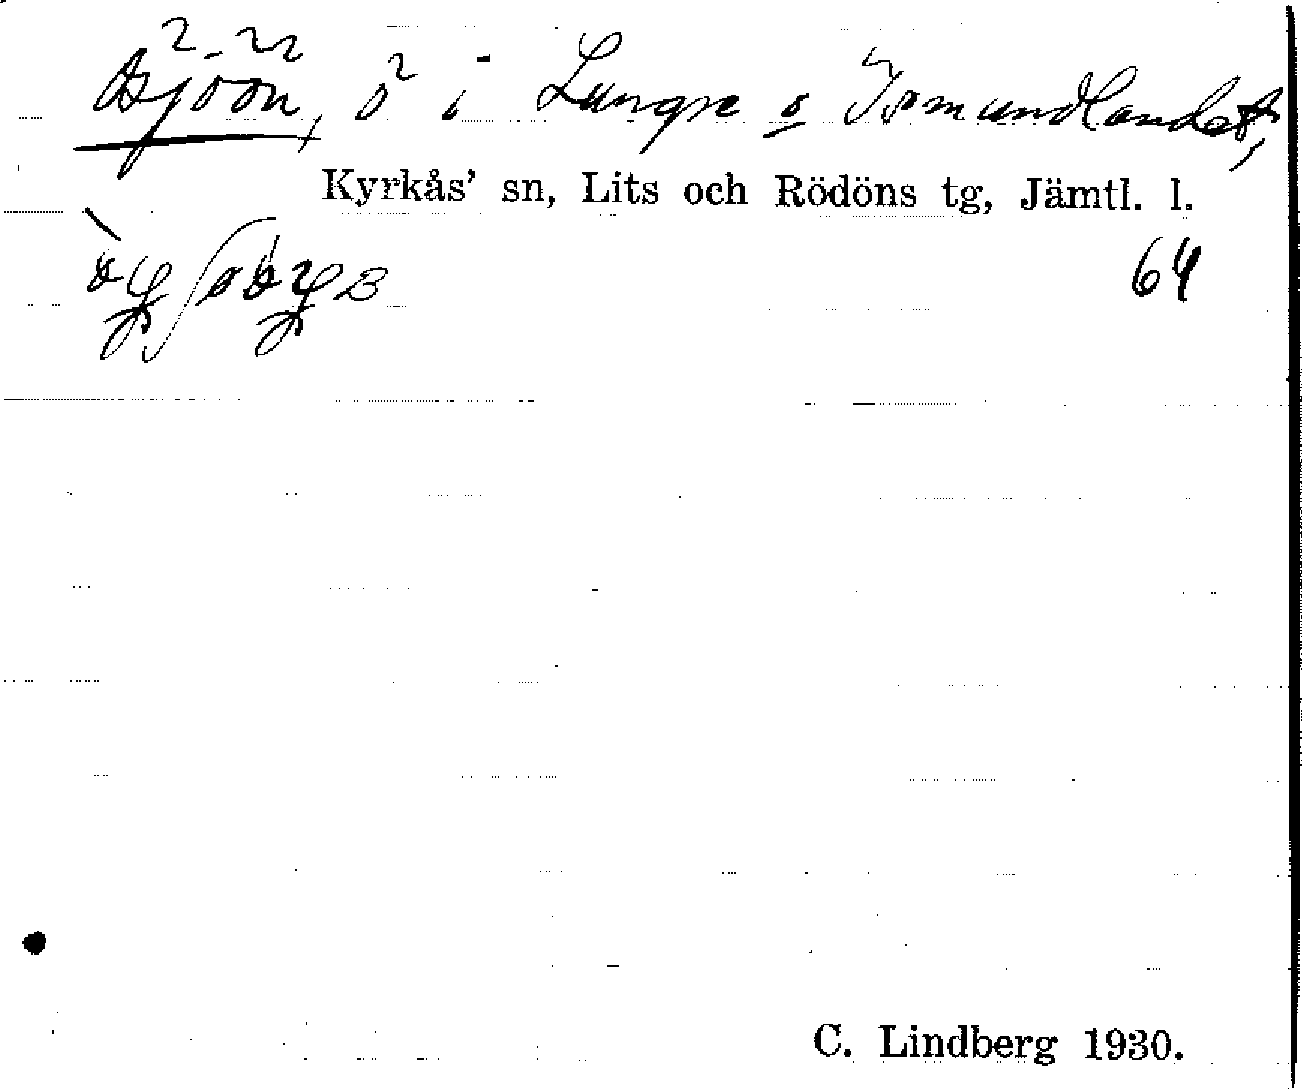 Osjöön, ö i Lungre o Ismundlandet,
Kyrkås' sn, Lits och Rödöns tg, Jämtl. l.
64
C. Lindberg 1930.